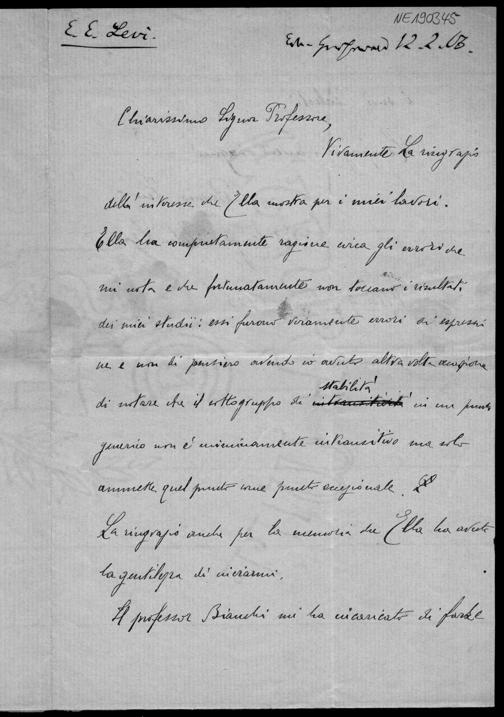 NE190345
E. E. Levi.
12.2.03
Chiarissimo Signor Professore,
Vivamente La ringrazio
dell' interesse che Ella mostra per i miei lavori.
Ella ha completamente ragione circa gli errori che
mi nota e che fortunatamente non toccano i risultati
dei miei studii: essi furono veramente errori di espressio
ne e non di pensiero avendo io avuto altra volta occasione
di notare che il sottogruppo di stabilità in un punto
generico non è minimamente intransitivo ma solo
ammette quel punto come punto eccezionale.
La ringrazio anche per la memoria che Ella ha avuto
la gentilezza di inviarmi.
Il professor Bianchi mi ha incaricato di farLe